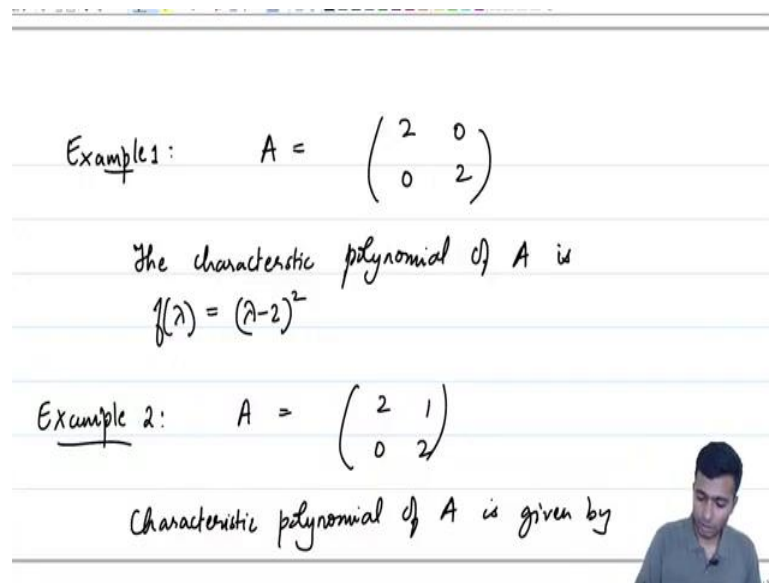 Example 1: A = ( 2 0
0 2 )
The characterstic polynomial of A is
f(λ) = (λ-2)²
Example 2: A = ( 2 1
0 2 )
Characteristic polynomial of A is given by